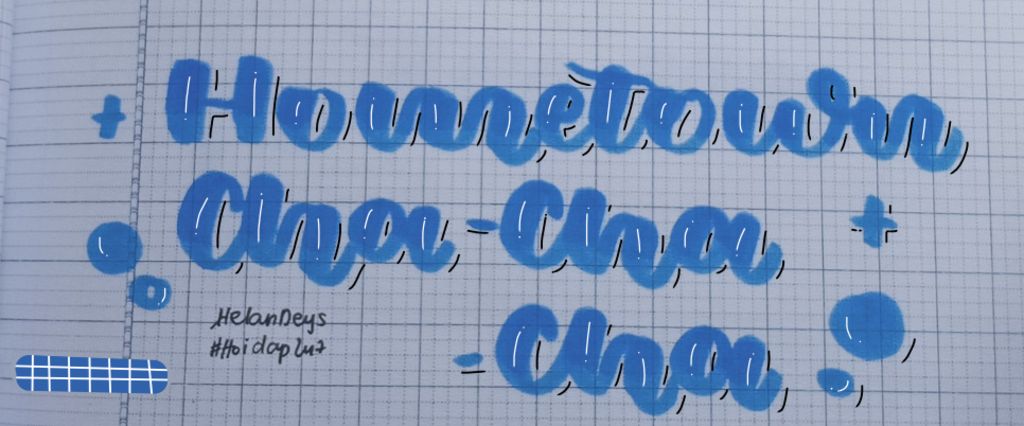 Hometown
Cha-Cha
-Cha
HelanDeys
#Hoidap247